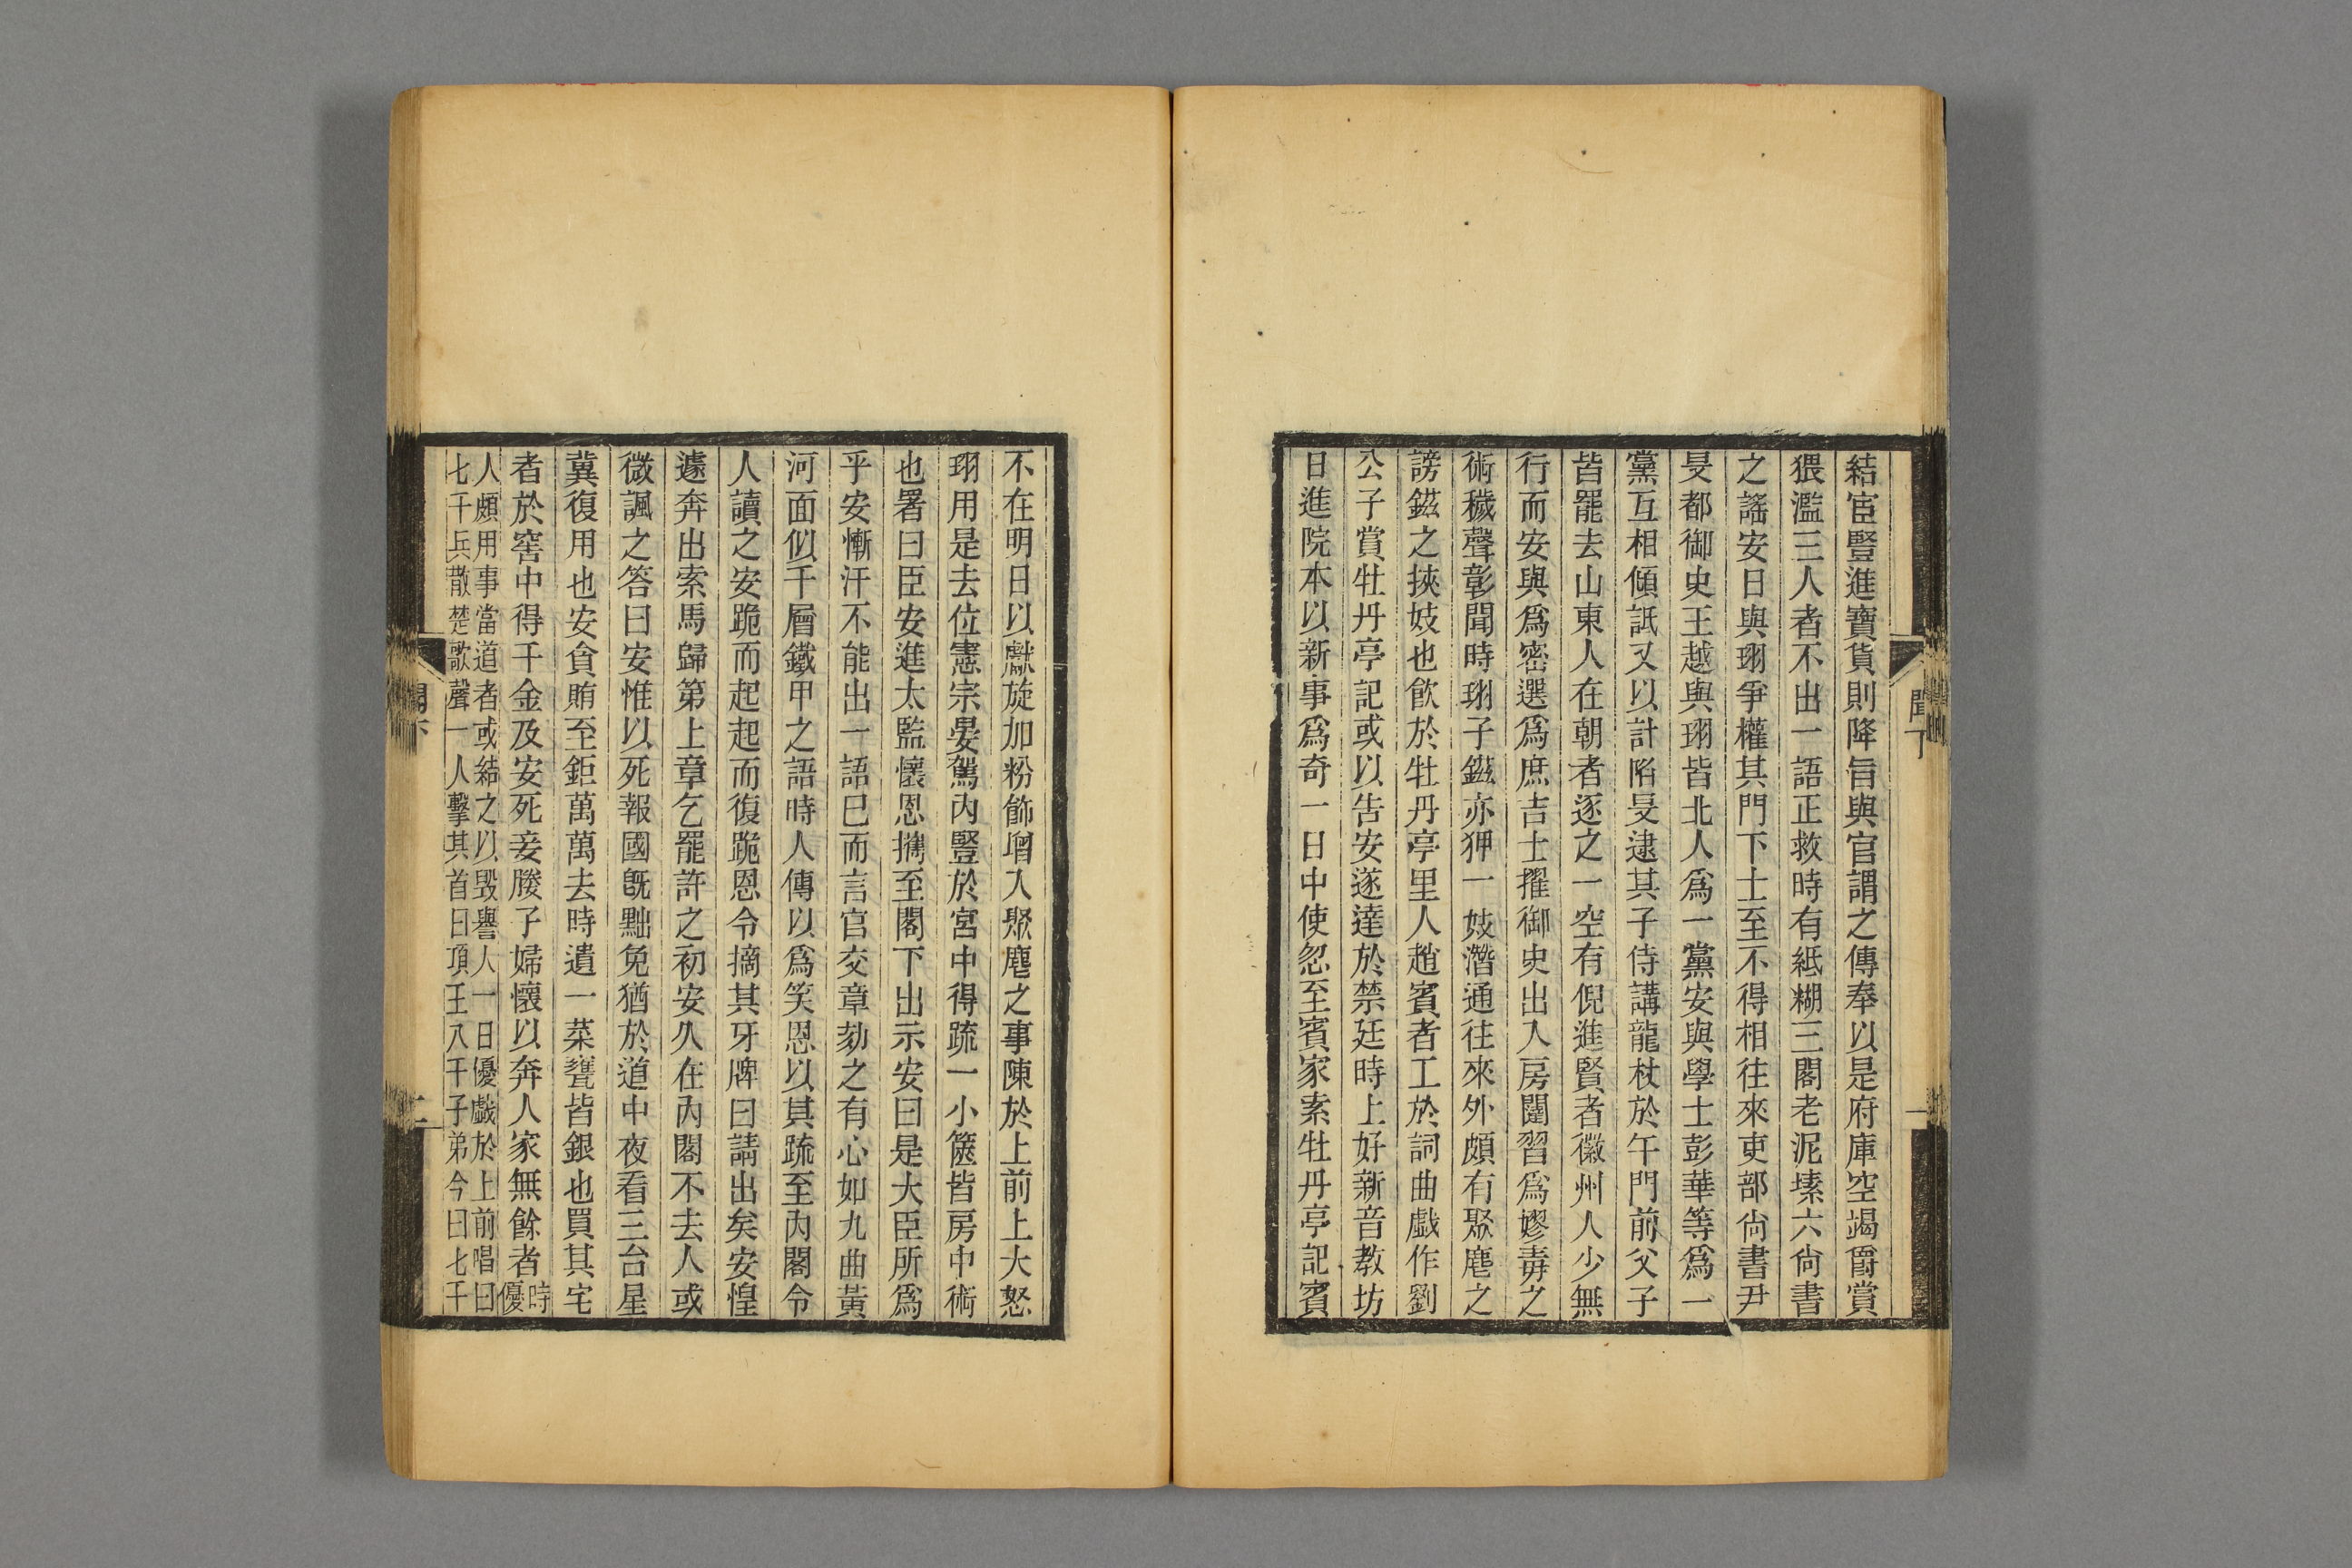 結宦豎進寶貨則降旨與官謂之傳奉以是府庫空竭爵賞
猥濫三人者不出一語正救時有紙糊三閣老泥塐六尙書
之謠安日與珝爭權其門下士至不得相往來吏部尙書尹
旻都御史王越與珝皆北人爲一黨安與學士彭華等爲一
黨互相傾詆又以計陷旻逮其子侍講龍杖於午門前父子
皆罷去山東人在朝者逐之一空有倪進賢者徽州人少無
行而安與爲密選爲庶吉士擢御史出入房闥習爲嫪毐之
術穢聲彰聞時珝子鎡亦狎一妓潛通往來外頗有聚麀之
謗鎡之挾妓也飮於牡丹亭里人趙賓者工於詞曲戲作劉
公子賞牡丹亭記或以吿安遂達於禁廷時上好新音教坊
日進院本以新事爲奇一日中使忽至賓家索牡丹亭記賓
聞下
一
不在明日以獻旋加粉飾增入聚麀之事陳於上前上大怒
珝用是去位憲宗晏駕內豎於宮中得疏一小篋皆房中術
也署曰臣安進太監懷恩擕至閣下出示安曰是大臣所爲
乎安慚汗不能出一語已而言官交章劾之有心如九曲黃
河面似千層鐵甲之語時人傳以爲笑恩以其疏至內閣令
人讀之安跪而起起而復跪恩令摘其牙牌曰請出矣安惶
遽奔出索馬歸第上章乞罷許之初安久在內閣不去人或
微諷之答曰安惟以死報國旣黜免猶於道中夜看三台星
冀復用也安貪賄至鉅萬萬去時遺一菜甕皆銀也買其宅
者於窖中得千金及安死妾媵子婦懷以奔人家無餘者時優
人頗用事當道者或結之以毀譽人一日優戲於上前唱曰
七千兵散楚歌聲一人擊其首曰項王八千子弟今曰七千
二